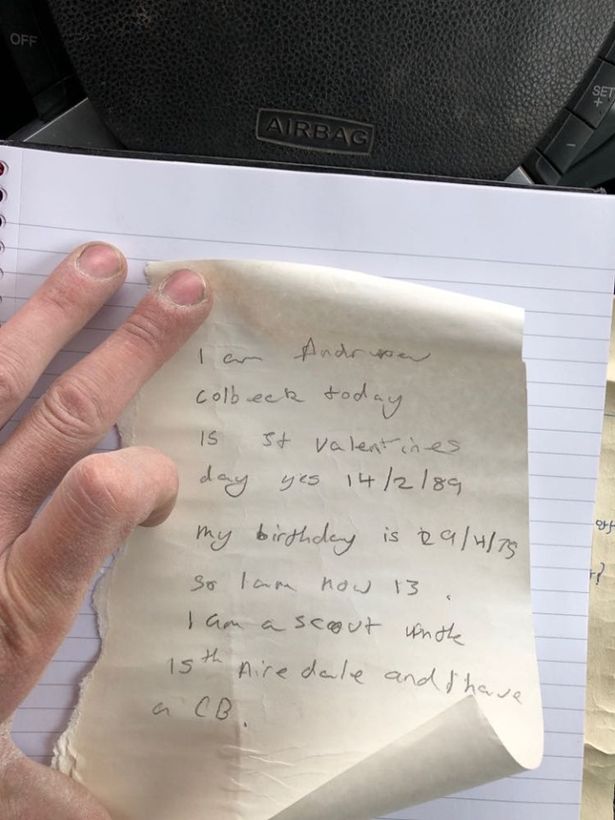 OFF
SET
+
−
AIRBAG
I am Andrew
Colbeck today
is st valentines
day yes 14/2/89
my birthday is 29/4/75
so I am now 13.
I am a scout in the
15th Airedale and I have
a CB.
?